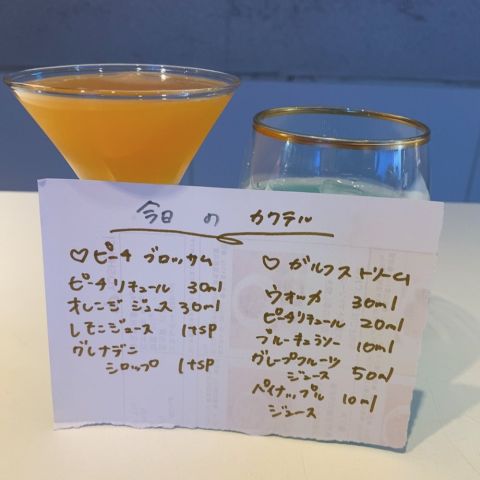 今日のカクテル
♡ピーチ ブロッサム
ピーチリキュール 30ml
オレンジジュース 30ml
レモンジュース 1tsp
グレナデン
シロップ 1tsp
♡ ガルフストリーム
ウォッカ 30ml
ピーチリキュール 20ml
ブルーキュラソー 10ml
グレープフルーツ
ジュース 50ml
パイナップル 10ml
ジュース